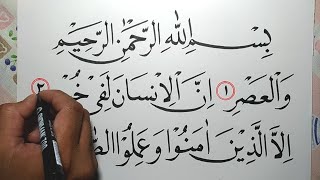 بِسْمِ اللهِ الرَّحْمٰنِ الرَّحِيْمِ
وَالْعَصْرِ ١ اِنَّ الْاِنْسَانَ لَفِيْ خُسْ ٢
اِلَّا الَّذِيْنَ اٰمَنُوْا وَعَمِلُوا